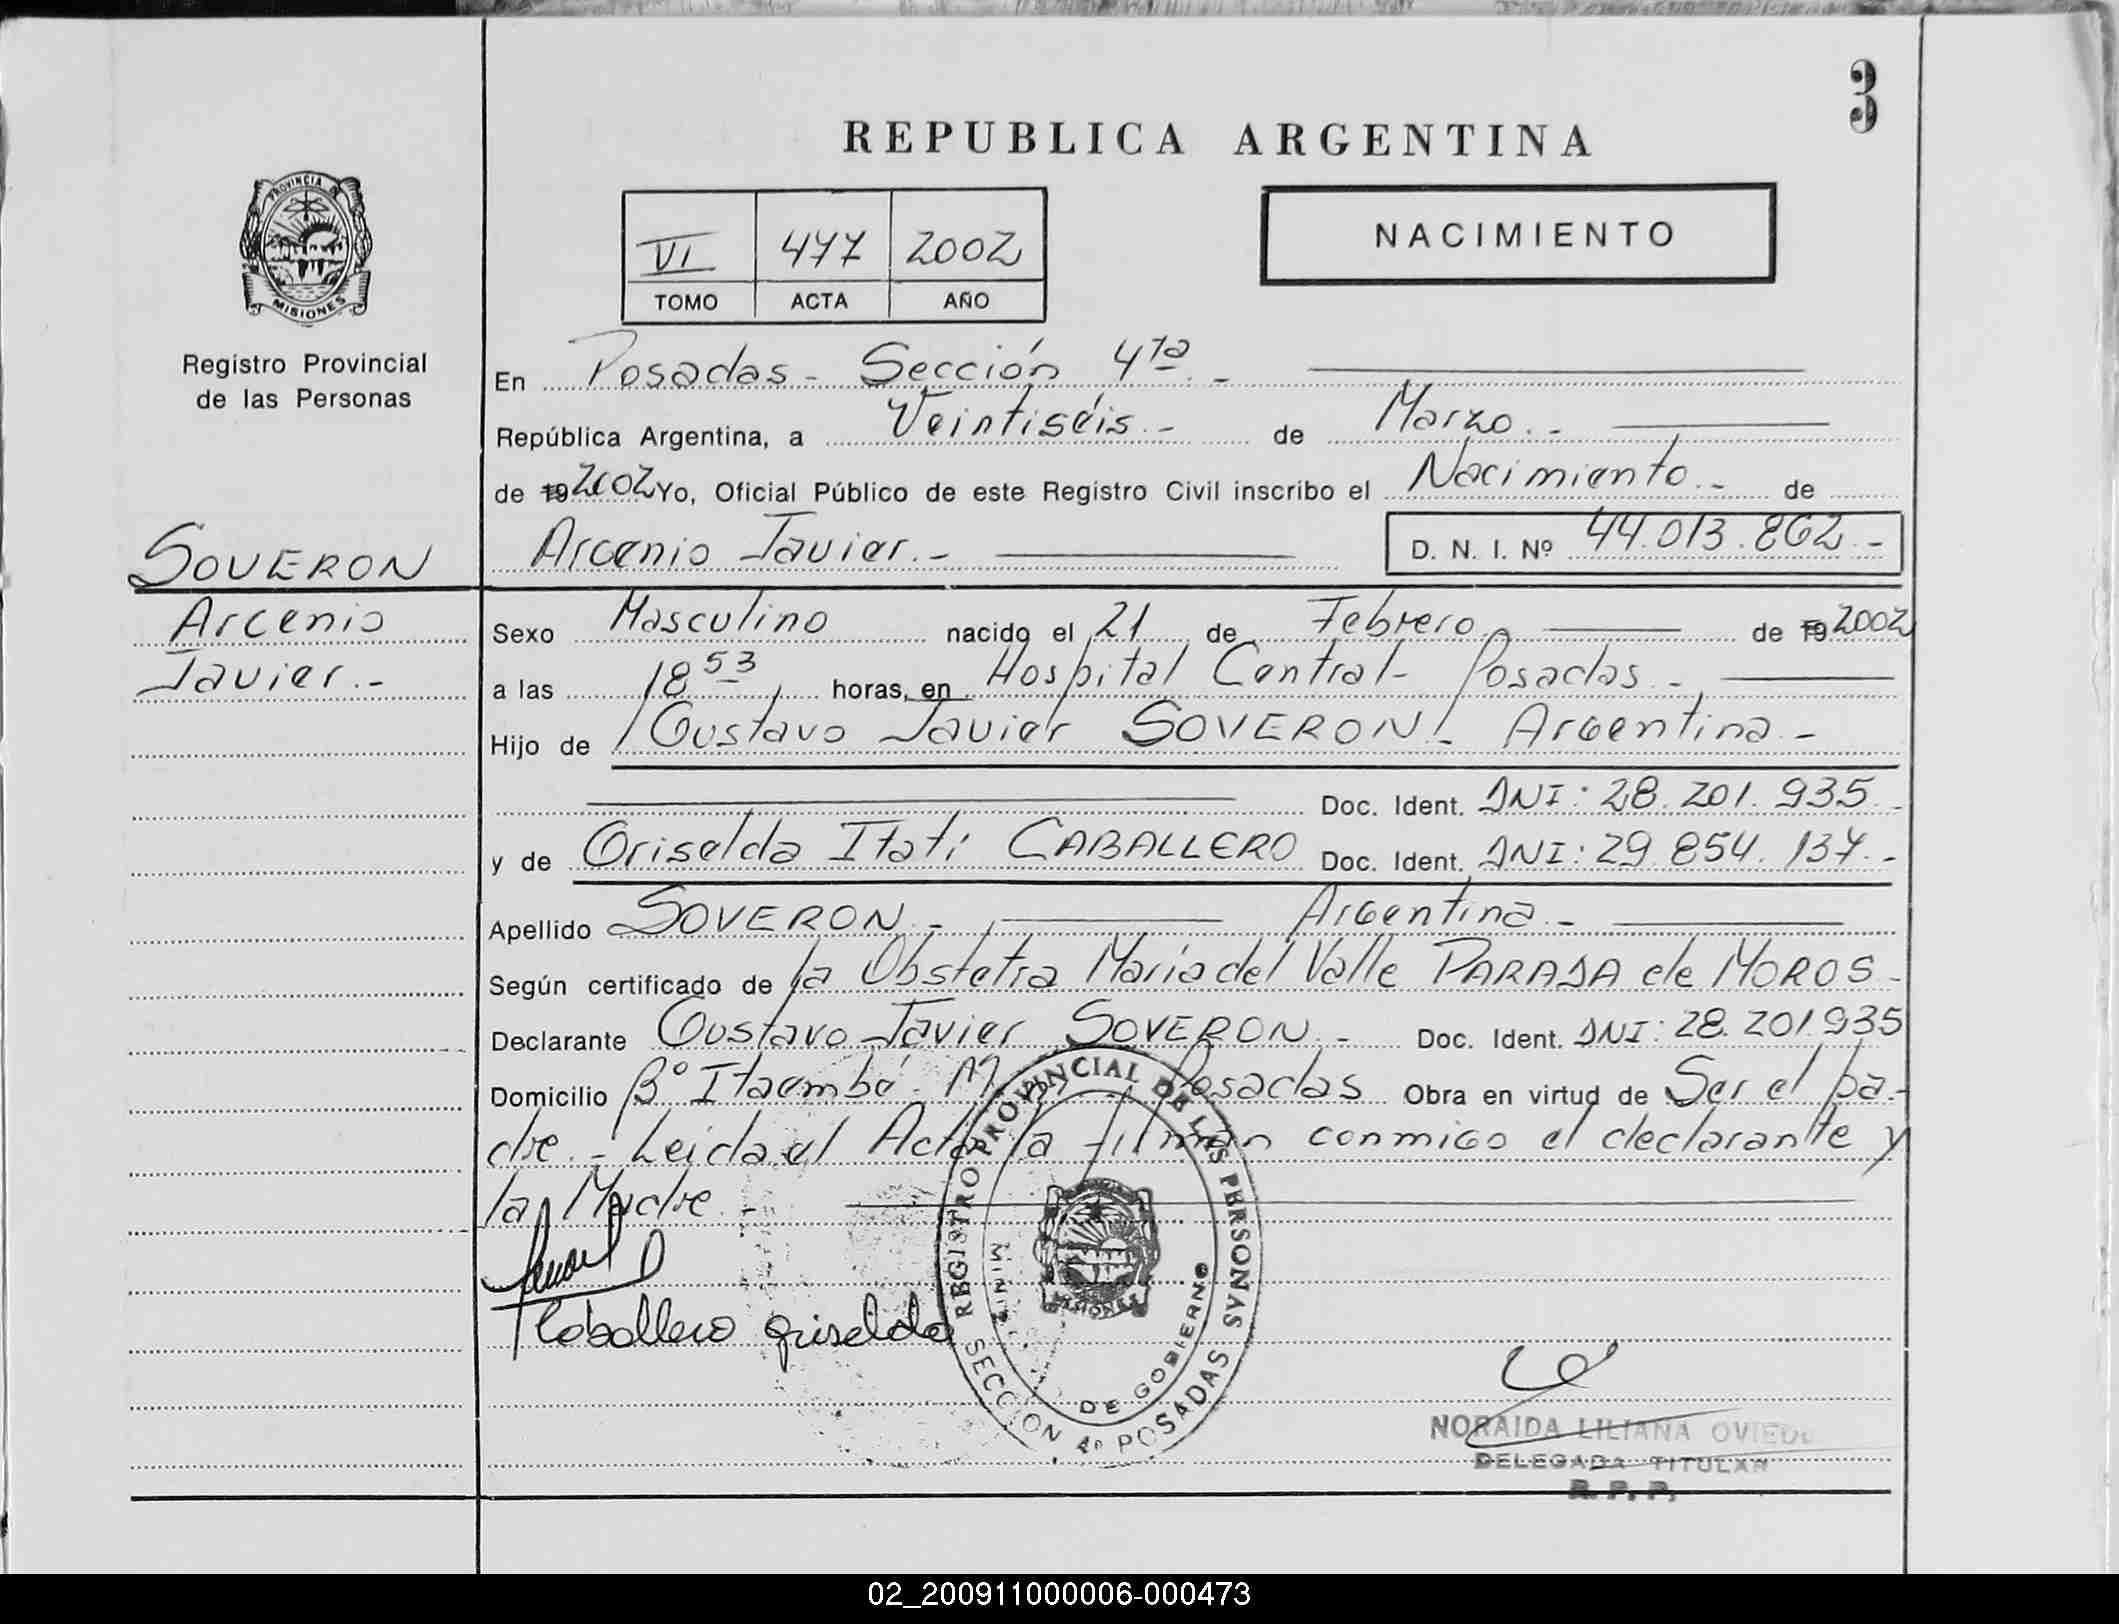 3
REPUBLICA ARGENTINA
PROVINCIA DE
MISIONES
VI 477 2002
TOMO ACTA AÑO
NACIMIENTO
Registro Provincial
de las Personas
En Posadas - Sección 4ta. -
República Argentina, a Veintiséis. - de Marzo. -
de 19 2002 Yo, Oficial Público de este Registro Civil inscribo el Nacimiento. - de
SOVERON
Arcenio
Javier. -
Arcenio Javier. - D. N. I. Nº 44.013.862 -
Sexo Masculino nacido el 21 de Febrero de 19 2002
a las 18 53 horas, en Hospital Central - Posadas. -
Hijo de Gustavo Javier SOVERON - Argentina. -
Doc. Ident. DNI: 28.201.935. -
y de Griselda Itatí CABALLERO Doc. Ident. DNI: 29.854.137. -
Apellido SOVERON. - Argentina. -
Según certificado de la Obstetra María del Valle PARADA de MOROS -
Declarante Gustavo Javier SOVERON. - Doc. Ident. DNI: 28.201.935
Domicilio Bº Itaembé M Posadas Obra en virtud de Ser el pa-
dre. - Leida el Acta la firman conmigo el declarante y
la Madre. -
Caballero griselda
REGISTRO PROVINCIAL DE LAS PERSONAS
SECCION 4º POSADAS
DE GOBIERNO
MISIONES
NORAIDA LILIANA OVIEDO
DELEGADA TITULAR
R. P. P.
02_200911000006-000473